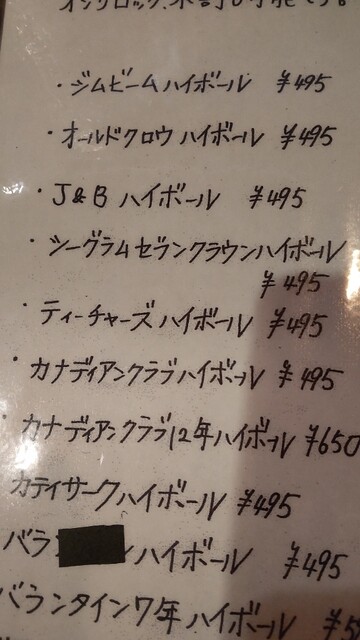 ・ジムビームハイボール ¥495
・オールドクロウハイボール ¥495
・J&B ハイボール ¥495
・シーグラムセブンクラウンハイボール
¥495
・ティーチャーズハイボール ¥495
・カナディアンクラブハイボール ¥495
・カナディアンクラブ12年ハイボール ¥650
カティサークハイボール ¥495
バラ ンハイボール ¥495
バランタイン7年ハイボール